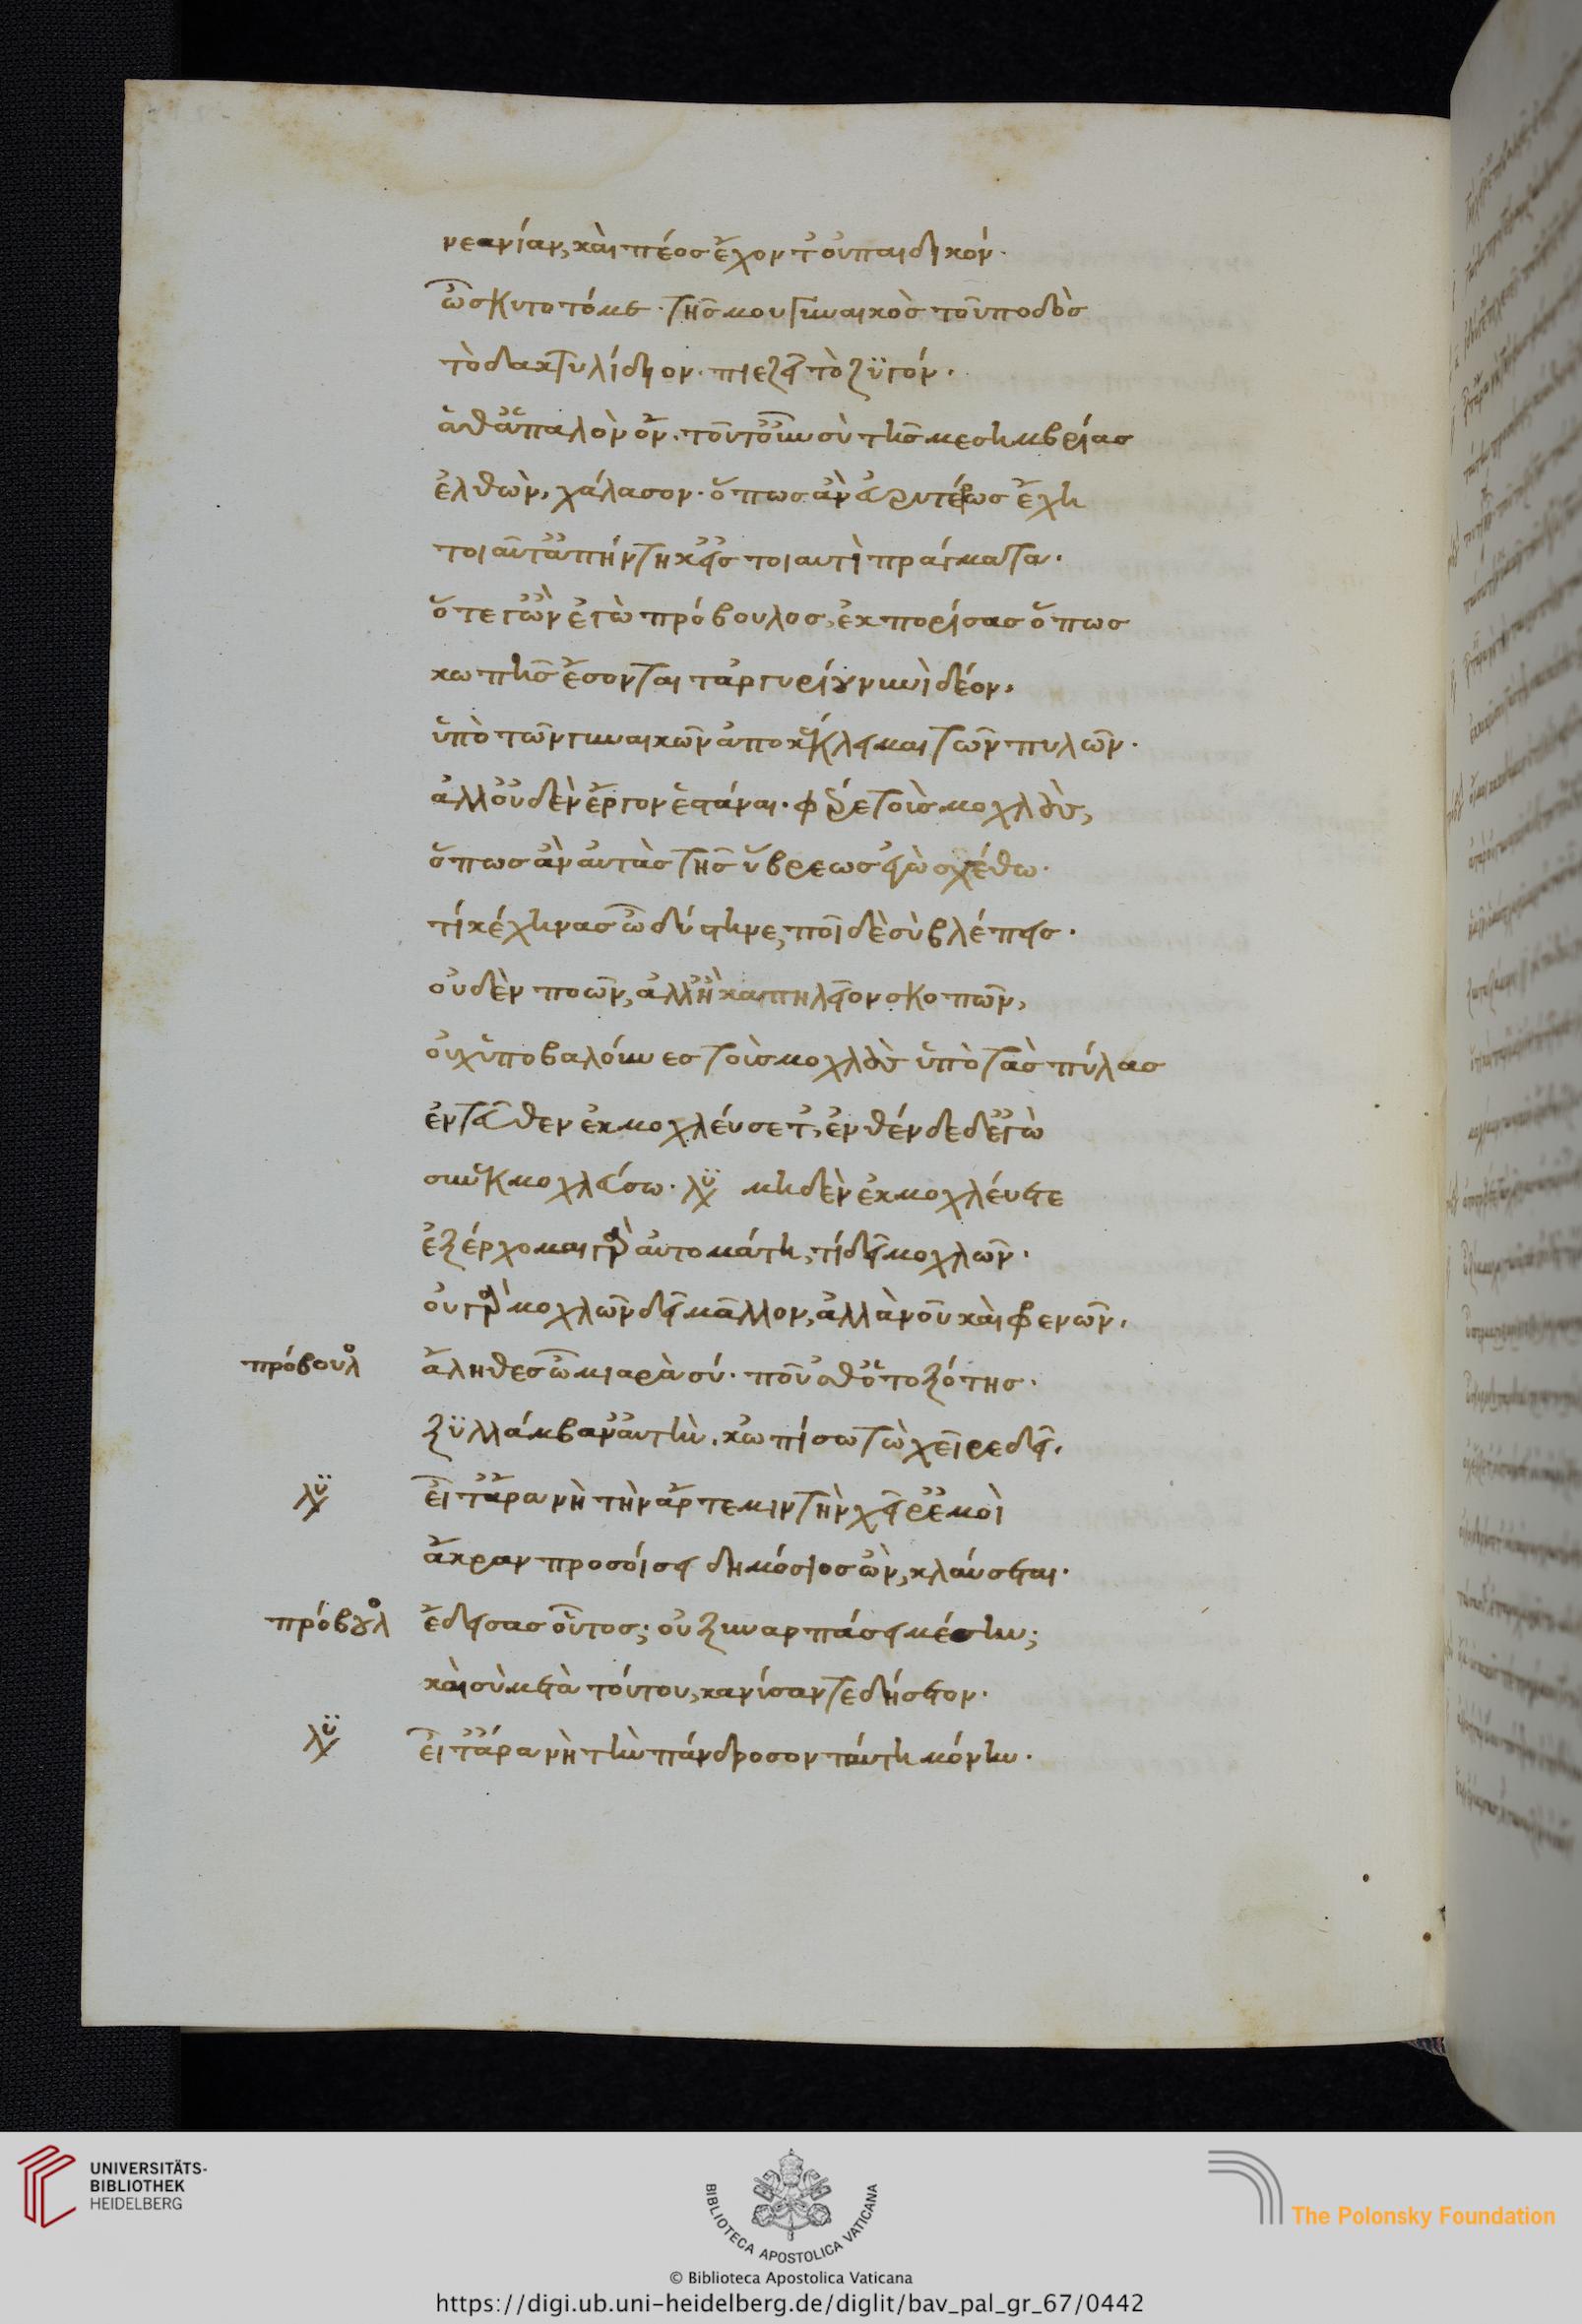 νεανίαν, καὶ πέος ἔχον τ' οὐ παιδικόν.
ὦ σκυτοτόμε. τῆς μου γυναικὸς τοῦ ποδὸς
τὸ δακτυλίδιον. πιέζει τὸ ζϋγόν.
ἅθ' ἁπαλὸν ὄν. τοῦτ' οὖν σὺ τῆς μεσημβρίας
ἐλθὼν, χάλασον. ὅπως ἂν εὐρυτέρως ἔχη
τοιαῦτ' ἀπήντηκ' εἰς τοιαυτὶ πράγματα.
ὅτε γ' ὢν ἐγὼ πρόβουλος, ἐκπορίσας ὅπως
κωπῆς ἔσονται ταργυρίου νυνὶ δέον,
ὑπὸ τῶν γυναικῶν ἀποκέκλειμαι τῶν πυλῶν.
ἀλλ' οὐδὲν ἔργον ἑστάναι. φέρε τοὺς μοχλοὺς,
ὅπως ἂν αὐτὰς τῆς ὕβρεως ἐγὼ σχέθω.
τί κέχηνας ὦ δύστηνε, ποῖ δὲ σὺ βλέπεις.
οὐδὲν ποῶν, ἀλλ' ἢ καπηλεῖον σκοπῶν,
οὐχ ὑποβαλόντες τοὺς μοχλοὺς ὑπὸ τὰς πύλας
ἐντεῦθεν ἐκμοχλεύσετ', ἐνθένδε δ' ἐγὼ
συνεκμοχλεύσω. λϋ μηδὲν ἐκμοχλεύετε
ἐξέρχομαι γὰρ αὐτομάτη, τί δεῖ μοχλῶν.
οὐ γὰρ μοχλῶν δεῖ μᾶλλον, ἀλλὰ νοῦ καὶ φρενῶν.
πρόβουλ ἄληθες ὦ μιαρὰ σύ. ποῦ 'σθ' ὁ τοξότης.
ξϋλλάμβαν' αὐτὴν. κὠπίσω τὼ χεῖρε δεῖ.
λϋ εἴ τἄρα νὴ τὴν ἄρτεμιν τὴν χεῖρ' ἐμοὶ
ἄκραν προσοίσει δημόσιος ὢν, κλαύσεται.
πρόβουλ ἔδεισας οὗτος; οὐ ξυναρπάσει μέσην;
καὶ σὺ μετὰ τούτου, κανίσαντε δήσετον.
λϋ εἴ τἄρα νὴ τὴν πάνδροσον ταύτη μόνην.
UNIVERSITÄTS-
BIBLIOTHEK
HEIDELBERG
BIBLIOTECA APOSTOLICA VATICANA
The Polonsky Foundation
© Biblioteca Apostolica Vaticana
https://digi.ub.uni-heidelberg.de/diglit/bav_pal_gr_67/0442